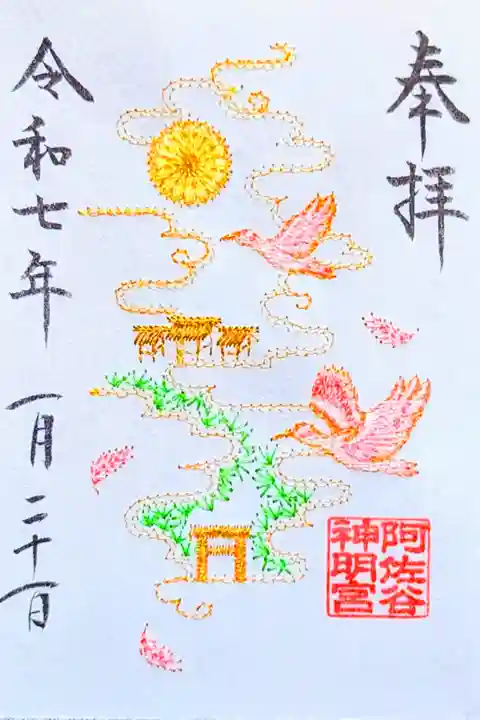 奉拝
阿佐谷
神明宮
令和七年 一月二十一日